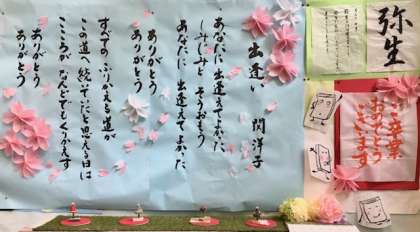 出逢い
関洋子
あなたに 出逢えてよかった
しみじみと そうおもう
あなたに 出逢えてよかった
ありがとう
ありがとう
すべての ふりかえる道が
この道へ続いていたと思える日は
こころが なんどでもくりかえす
ありがとう
ありがとう
弥生
ご卒業
おめでとう
ございます